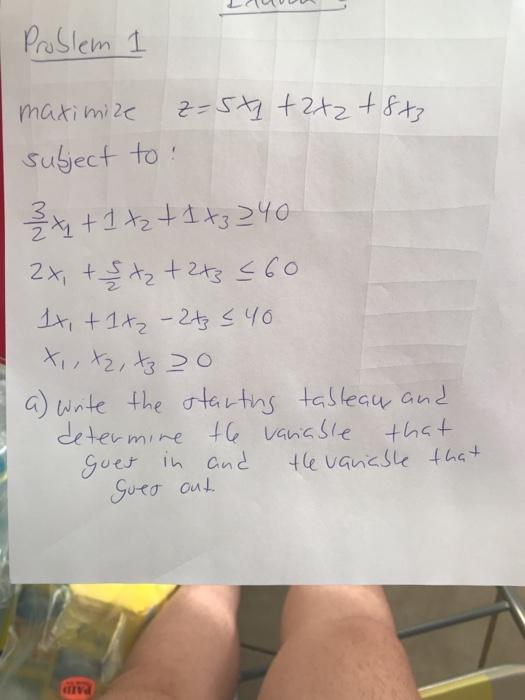 Problem 1
maximize z = 5x1 + 2x2 + 8x3
subject to:
3/2 x1 + 1x2 + 1x3 ≥ 40
2x1 + 5/2 x2 + 2x3 ≤ 60
1x1 + 1x2 - 2x3 ≤ 40
x1, x2, x3 ≥ 0
a) Write the starting tableau and
determine the variable that
goes in and the variable that
goes out.
PAID